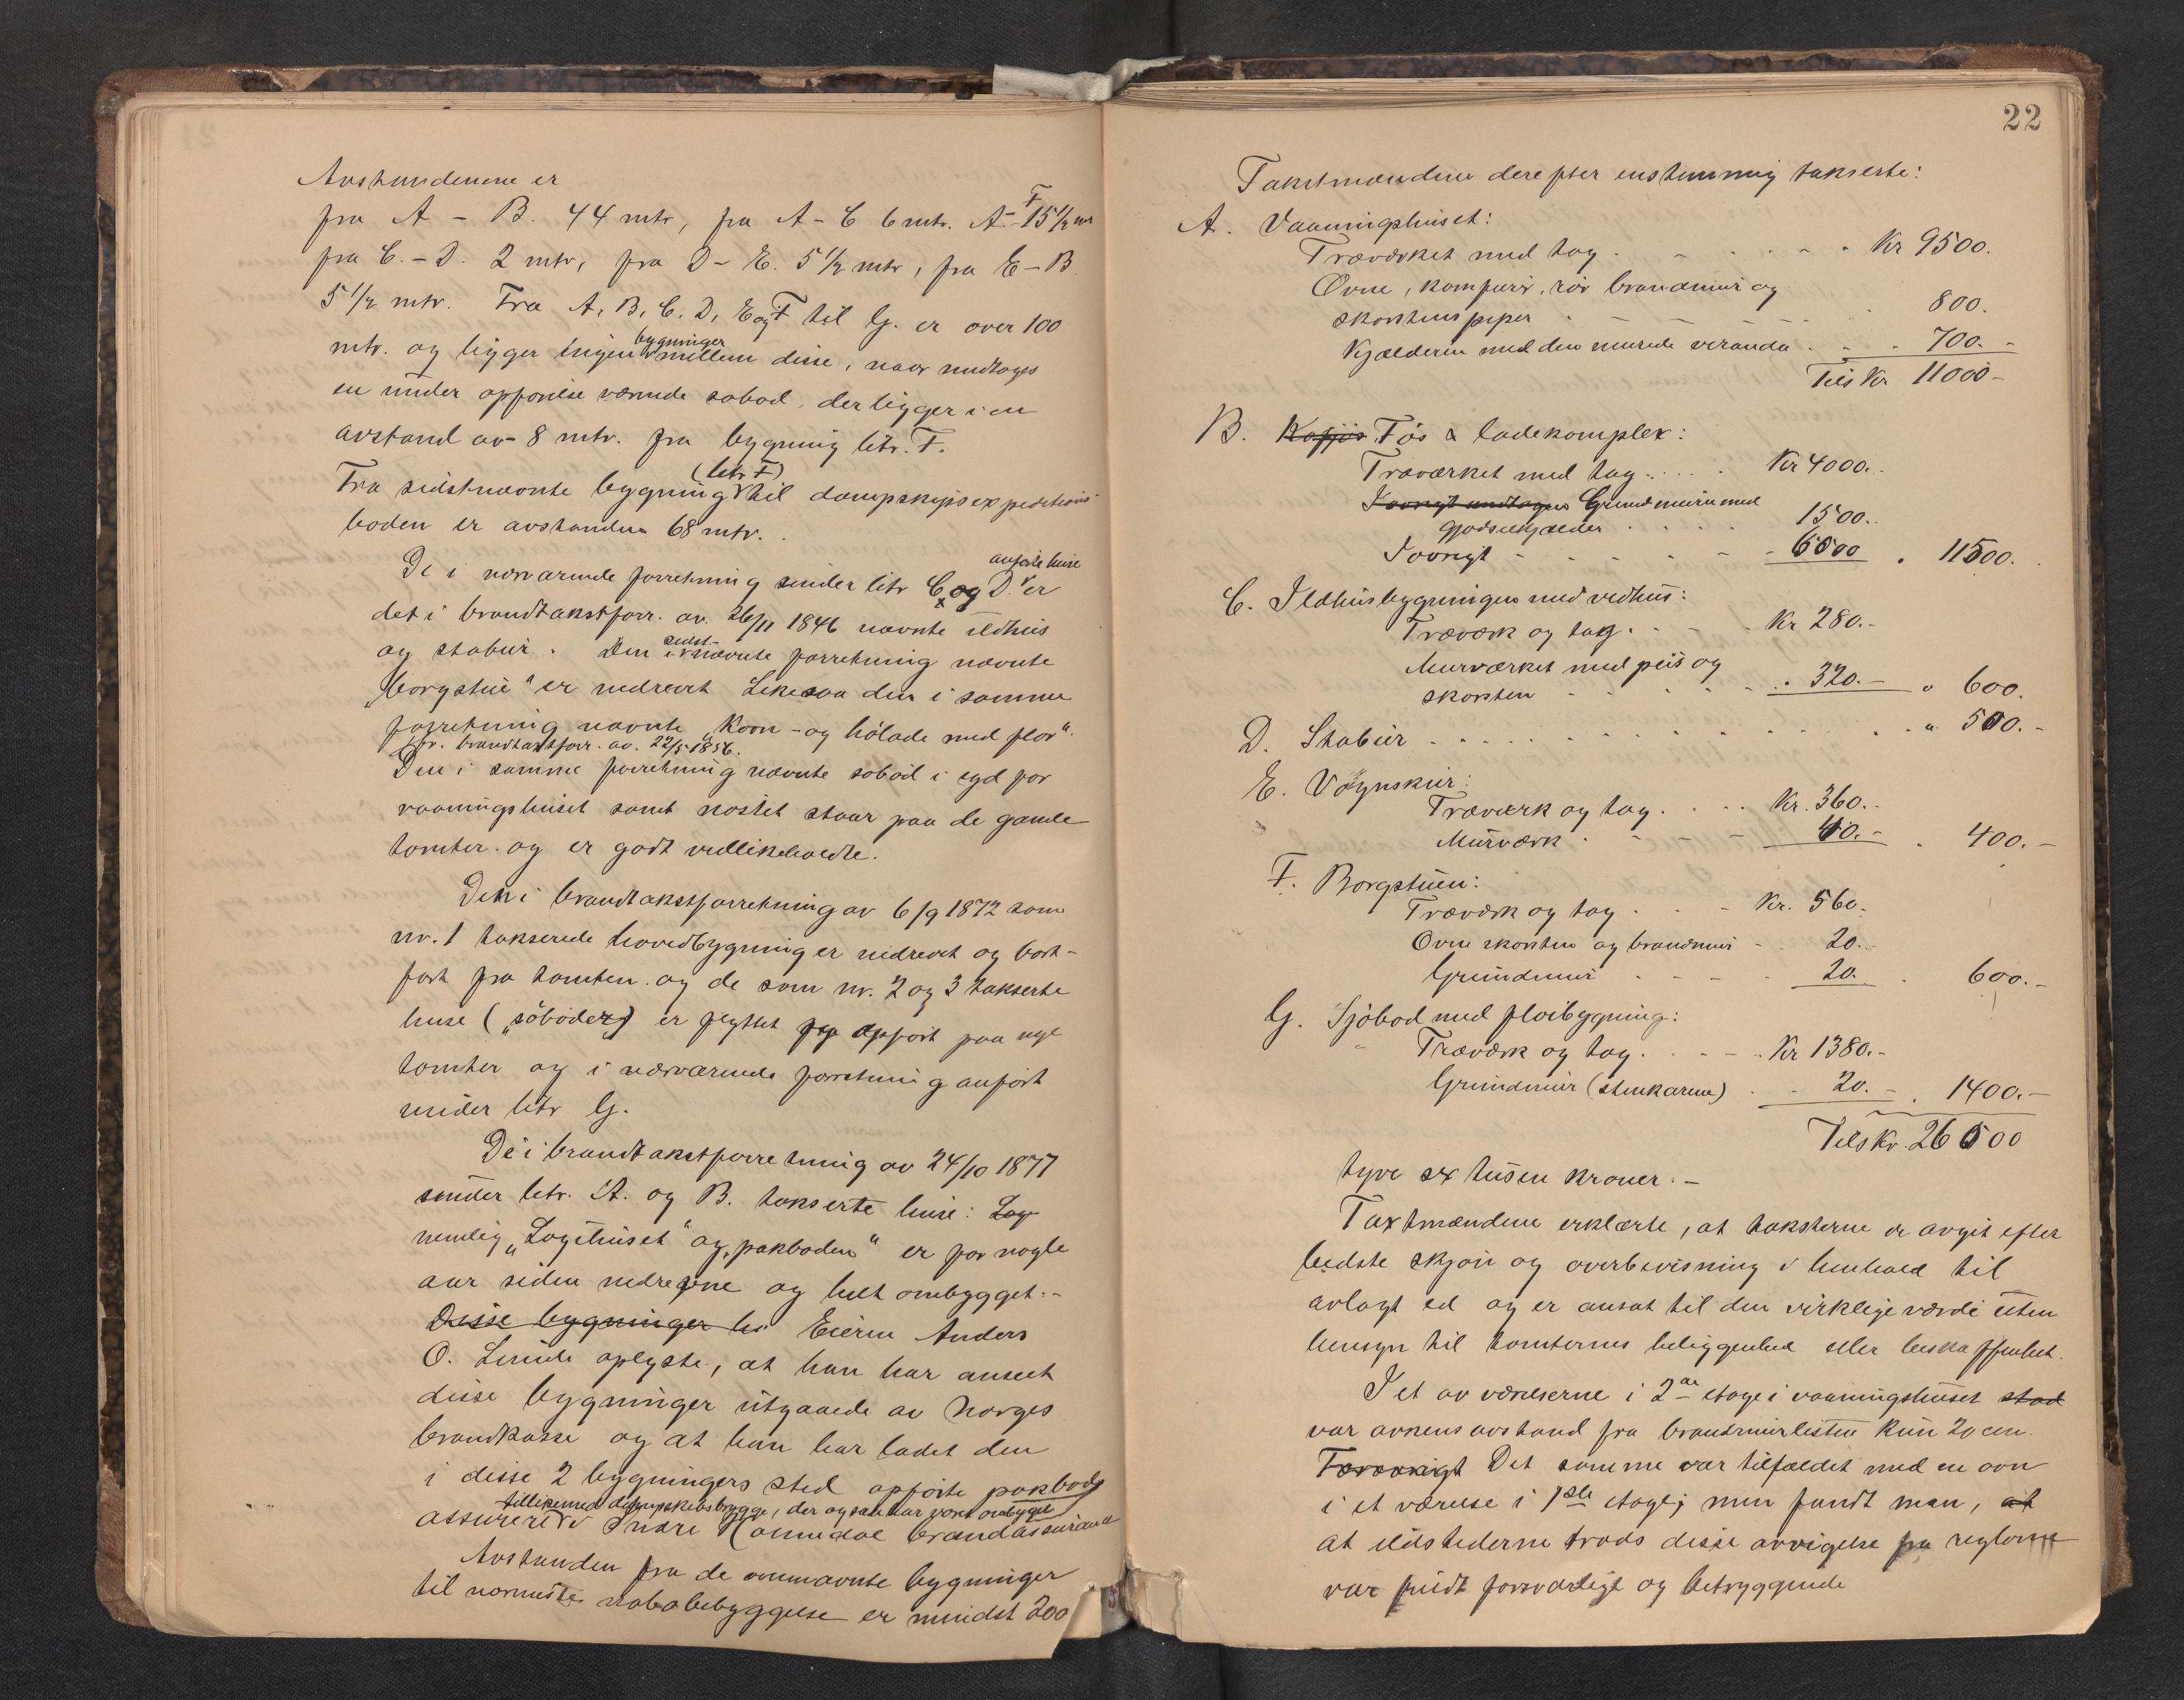 Avstandene er
fra A – B. 44 mtr, fra A – C 6 mtr. A – F 15 1/2 mtr
fra C. – D. 2 mtr, fra D – E. 5 1/2 mtr, fra E – B
5 1/2 mtr. Fra A, B, C. D, E og F til G. er over 100
mtr. og ligger ingen bygninger mellem disse, naar undtages
en under opførelse værende søbod, der ligger i en
avstand av 8 mtr. fra bygning litr. F.
Fra sidstnævnte bygning (litr F) til dampskipsexpeditions
boden er avstanden 68 mtr.
De i nærværende forretning under litr C og D. anførte huse er
det i brandtakstforr. av 26/11 1846 nævnte ildhus
og stabur. Den i sidst-nævnte forretning nævnte
„borgstue" er nedrevet Likesaa den i samme
forretning nævnte „Korn- og hølade med flor".
jfr. brandtakstforr. av. 22/5 1856.
Den i samme forretning nævnte søbod i syd for
vaaningshuset samt nøstet staar paa de gamle
tomter. og er godt vedlikeholdte.
Den i brandtakstforretning av 6/9 1872 som
nr. 1 takserede hovedbygning er nedrevet og bort-
ført fra tomten. og de som nr. 2 og 3 takserte
huse („søboder") er flyttet og opført paa nye
tomter og i nærværende forretning anført
under litr G.
De i brandtakstforretning av 24/10 1877
under litr. A. og B. takserte huse: Log
nemlig „Logihuset" og „pakboden" er for nogle
aar siden nedrevne og helt ombygget. –
Disse bygninger he Eieren Anders
O. Lunde oplyste, at han har anseet
disse bygninger utgaaede av Norges
brandkasse og at han har ladet den
i disse 2 bygningers sted opførte pakbod
tillikemed dampskibsbrygge, der ogsaa har været ombygget
assurert i Indre Romsdal brandassurance
Avstanden fra de ovennævnte bygninger
til nærmeste nabobebyggelse er mindst 200
22
Takstmændene derefter enstemmig takserte:
A. Vaaningshuset:
Træverket med tag . – . – . Kr 9500.
Ovne, komfurer, rør brandmur og
skorstenspiper . – – – . 800.
Kjælderen med den murede veranda . – . 700. –
Tils Kr 11000 –
B. Fjøs & ladekomplex:
Træverket med tag . . . . Kr 4000. .
Iøvrigt undtagen Grundmuren med
gjødselkjælder . . . . 1500. .
Iøvrigt – – – – – 6000 . 11500.
C. Ildhusbygningen med vedhus:
Træverk og tag . – – . Kr 280. –
Murværket med peis og
skorsten – – – – . . 320. – " 600.
D. Stabur . . . . . . . . . . . " 500. –
E. Vognskur:
Træværk og tag . . . . Kr. 360. .
Murværk . – – – – 40. – . 400. –
F. Borgstuen:
Træværk og tag . . – Kr. 560.
Ovne skorsten og brandmur – 20. –
Grundmur . – – – . 20. . 600. –
G. Sjøbod med fløibygning:
Træværk og tag . . – – . Kr 1380. –
Grundmur (stenkarene) . – 20. – . 1400. –
Tils Kr. 26000
tyve sex tusen kroner. –
Taxtmændene erklærte, at taksterne er avgit efter
bedste skjøn og overbevisning i henhold til
avlagt ed og er ansat til den virkelige værdi uten
hensyn til tomternes beliggenhed eller beskaffenhet.
I et av værelserne i 2de etage i vaaningshuset stod
var ovnens avstand fra brandmurlisten kun 20 cm.
Forøvrigt Det samme var tilfældet med en ovn
i et værelse i 1ste etage; men fandt man, at
at ildstederne trods disse avvigelse fra reglerne
var fuldt forsvarligt og betryggende